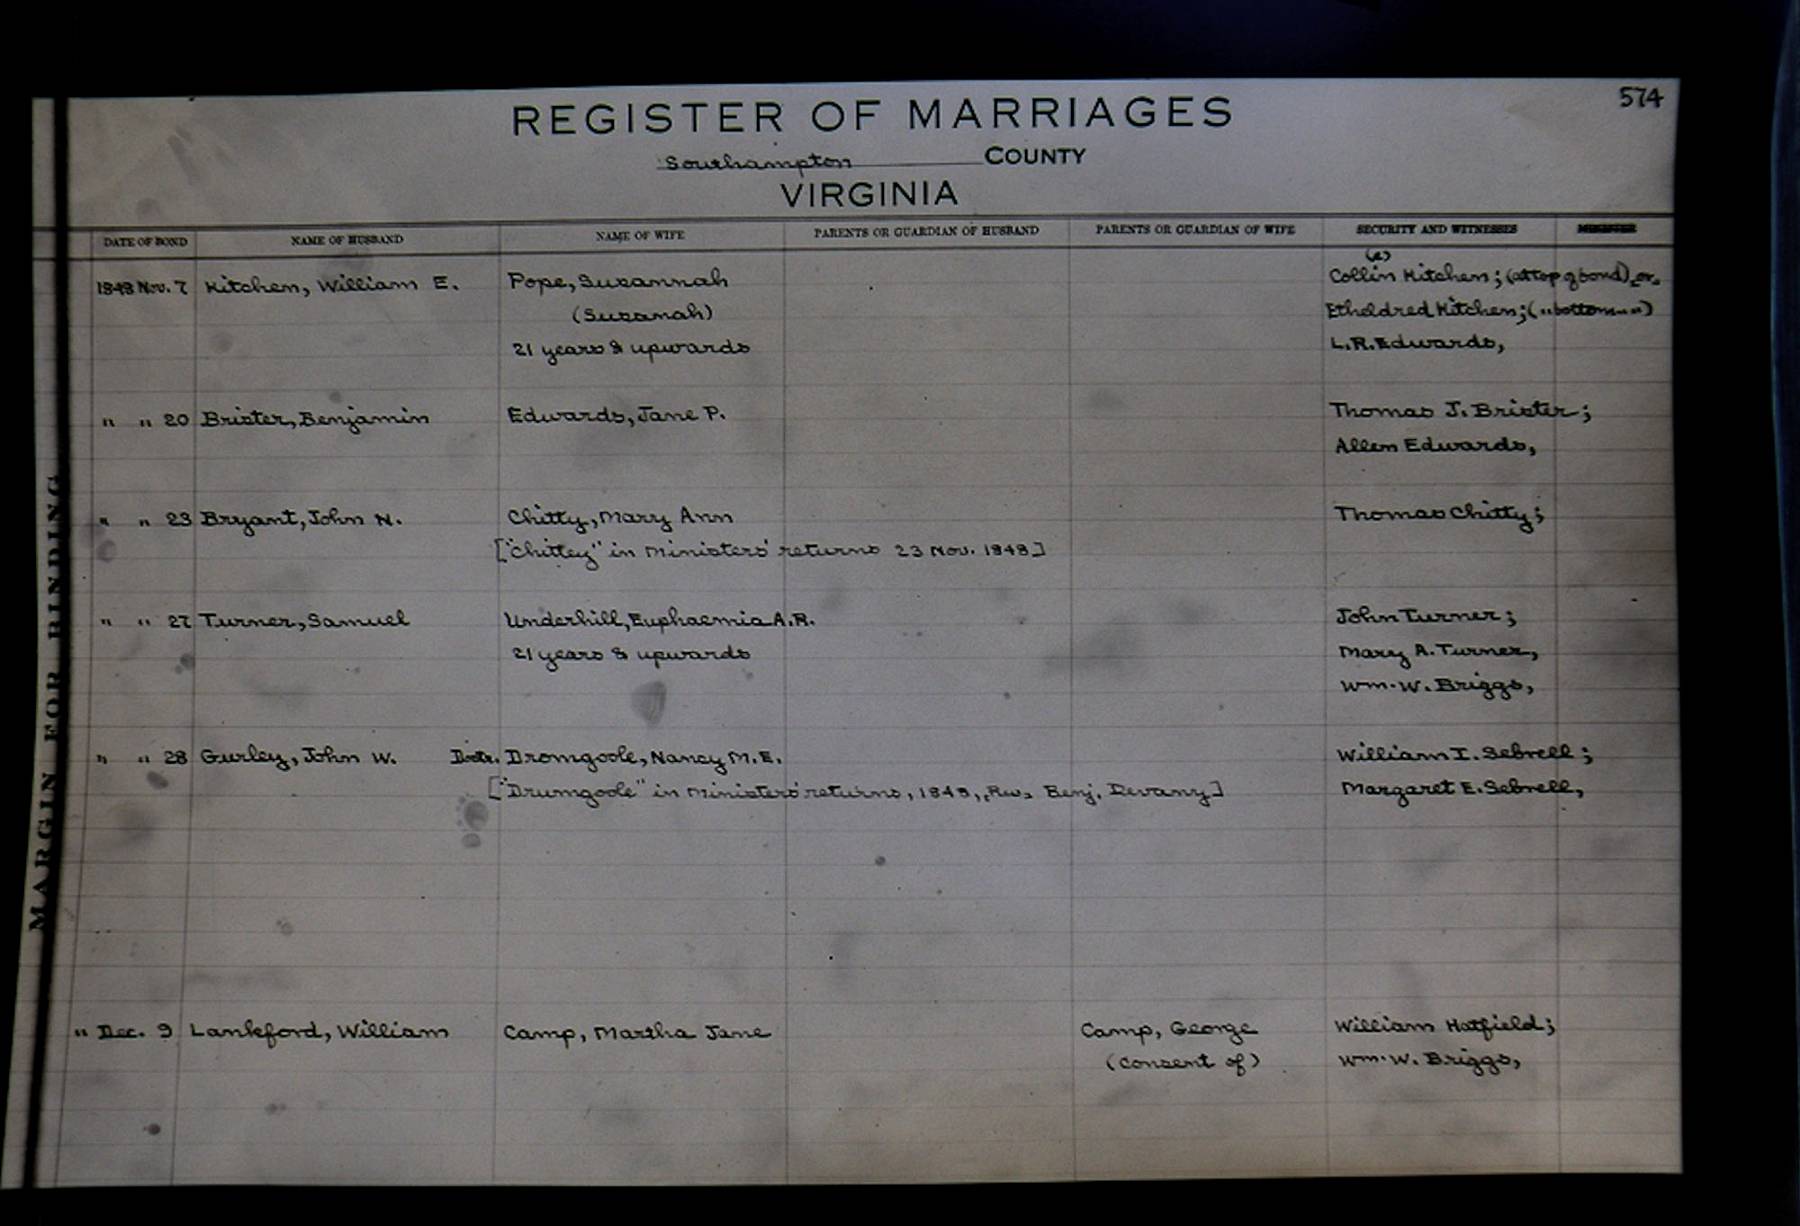 574
REGISTER OF MARRIAGES
Southampton COUNTY
VIRGINIA
DATE OF BOND NAME OF HUSBAND NAME OF WIFE PARENTS OR GUARDIAN OF HUSBAND PARENTS OR GUARDIAN OF WIFE SECURITY AND WITNESSES MINISTER
(s)
1848 Nov. 7 Kitchen, William E. Pope, Susannah Collin Kitchen; (at top of bond), or,
(Susanah) Etheldred Kitchen; ( " bottom " " )
21 years & upwards L.R. Edwards,
" " 20 Brister, Benjamin Edwards, Jane P. Thomas J. Brister;
Allen Edwards,
" " 23 Bryant, John N. Chitty, Mary Ann Thomas Chitty;
["Chittey" in Ministers' returns 23 Nov. 1848]
" " 27 Turner, Samuel Underhill, Euphaemia A.R. John Turner;
21 years & upwards Mary A. Turner,
Wm. W. Briggs,
" " 28 Gurley, John W. Doctr. Dromgoole, Nancy M.E. William I. Sebrell;
["Drumgoole" in Ministers' returns, 1848, Rev. Benj. Devany] Margaret E. Sebrell,
" Dec. 9 Lankford, William Camp, Martha Jane Camp, George William Hatfield;
(consent of) Wm. W. Briggs,
MARGIN FOR BINDING